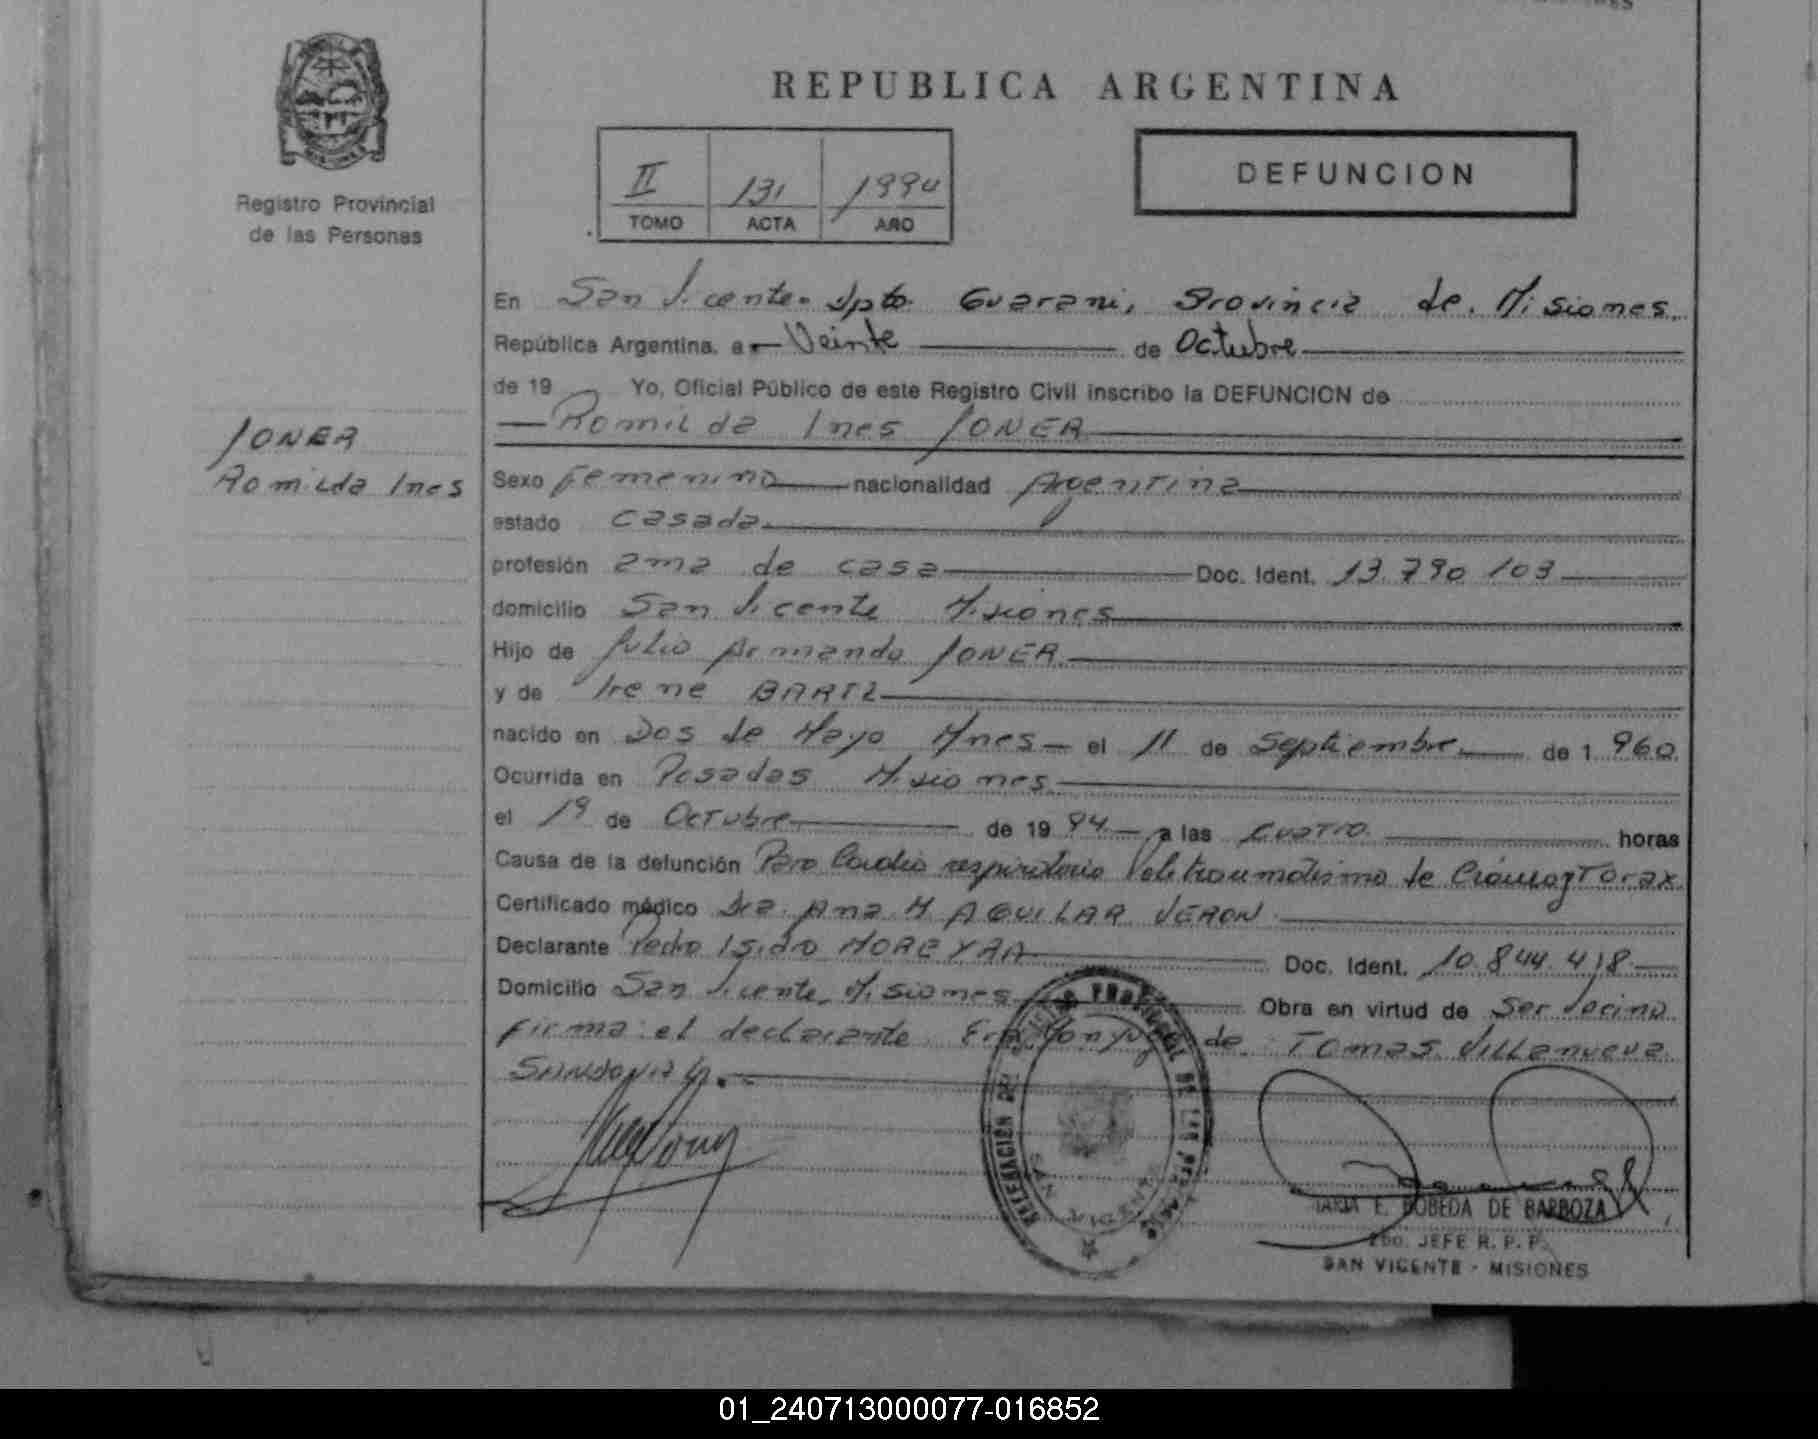 REPUBLICA ARGENTINA
Registro Provincial
de las Personas
II 131 1994
TOMO ACTA AÑO
DEFUNCION
En San Vicente. Dpto. Guarani, Provincia de. Misiones.
República Argentina, a Veinte de Octubre
de 19 Yo, Oficial Público de este Registro Civil inscribo la DEFUNCION de
Romilda Ines JONER
JONER
Romilda Ines
Sexo Femenino nacionalidad Argentina
estado casada
profesión ama de casa Doc. Ident. 13.790.103
domicilio San Vicente Misiones
Hijo de Julio Armando JONER
y de Irene BARTZ
nacido en Dos de Mayo Mnes el 11 de Septiembre de 1.960.
Ocurrida en Posadas Misiones
el 19 de Octubre de 1994 a las cuatro horas
Causa de la defunción Paro Cardio respiratorio Politraumatismo de Cráneo y Torax
Certificado médico Dra. Ana M AGUILAR VERON
Declarante Pedro Isidro MOREYRA Doc. Ident. 10.844.418
Domicilio San Vicente, Misiones Obra en virtud de Ser Vecino
firma el declarante Era Conyuge de TOMAS Villanueva
SANDOVAL.
REGISTRO PROVINCIAL DE LAS PERSONAS
SAN VICENTE
E. BOBEDA DE BARBOZA
JEFE R. P. P.
SAN VICENTE - MISIONES
01_240713000077-016852